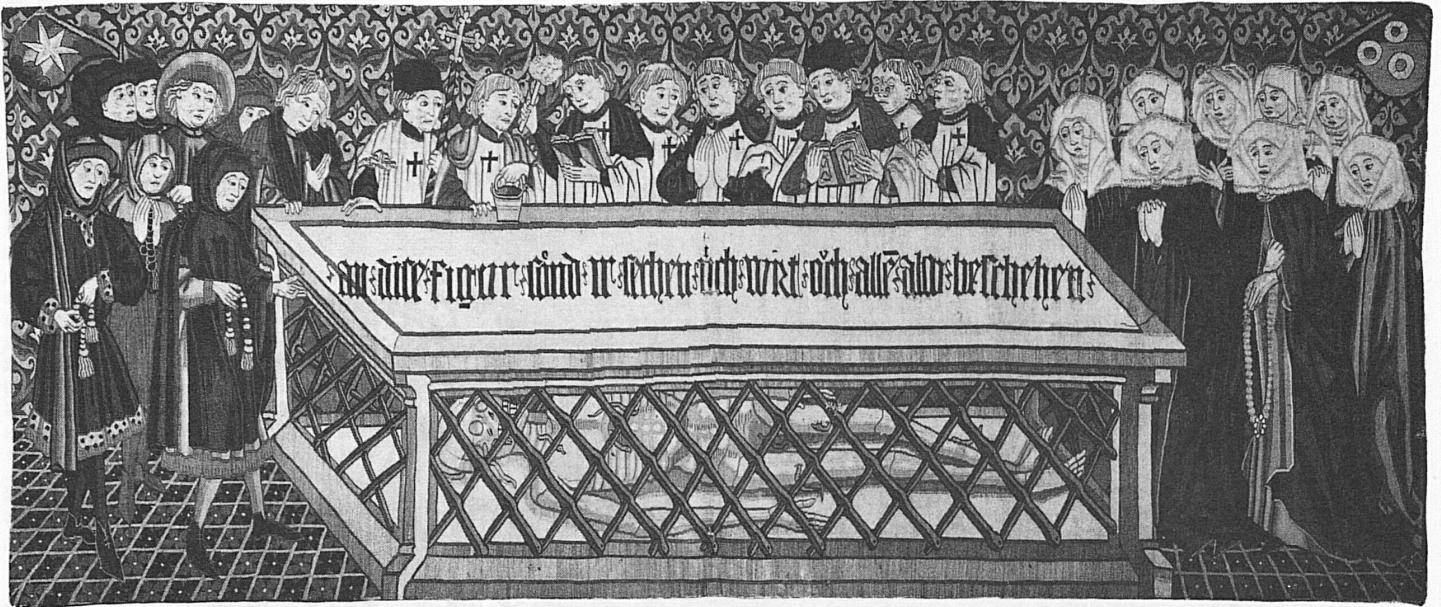 an · dise · figur · sönd · ir · sechen · üch · wirt · öch · allē · also · beschehen ·